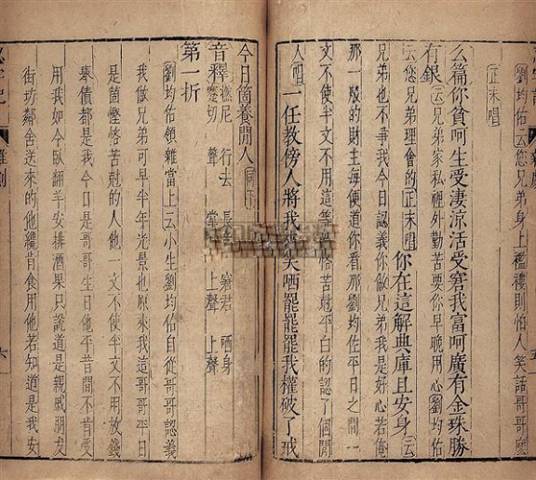 劉均佑云您兄弟身上襤褸則怕人笑話哥哥麼
正末唱
么篇你貪呵生受淒涼活受窘我富呵廣有金珠勝
有銀云兄弟家私裡外勤苦要你早晚用心劉均佑
云您兄弟理會的正末唱你在這解典庫且安身云
兄弟也不爭我今日認義你做兄弟我是好心若俺
那一般的財主每便道你看那劉均佐平日之間一
文不使半文不用這等慳吝平白的認了個閒
人唱一任教傍人將我來笑哂罷罷罷我權破了戒
今日箇養閒人同下
音釋
第一折
劉均佑領雜當上云小生劉均佑自從哥哥認義
我做兄弟可早半年光景也原來我這哥哥平日
是箇慳吝苦尅的人他一文不使半文不用放錢
舉債都是我今日是哥哥生日他平昔間不肯受
用我如今臥翻羊安排酒果只說道是親戚朋友
街坊鄰舍送來的他纔肯食用他若知道是我安